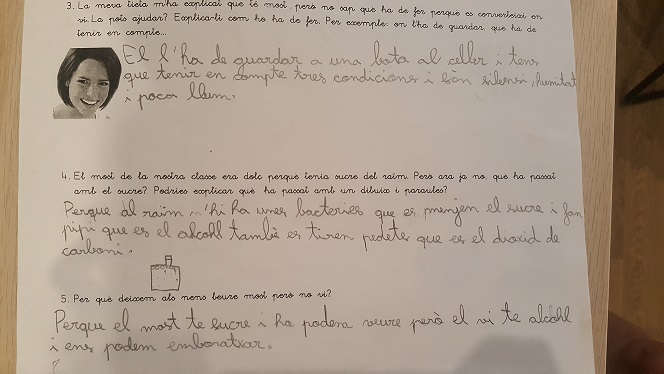 3. La meva tieta m'ha explicat que té most però no sap que ha de fer perquè es converteixi en
vi. La pots ajudar? Explica-li com ho ha de fer. Per exemple: on l'ha de guardar, que ha de
tenir en compte...
El l'ha de guardar a una bota al celler i tens
que tenir en compte tres condicions i són silensi, humitat
i poca llum.
4. El most de la nostra classe era dolç perquè tenia sucre del raïm. Però ara ja no, què ha passat
amb el sucre? Podries explicar què ha passat amb un dibuix i paraules?
Perque al raïm n'hi ha unes bacteries que es menjen el sucre i fan
pipi que es el alcohl també es tiren pedets que es el dioxid de
carboni.
5. Per què deixem als nens beure most però no vi?
Perque el most te sucre i ha podem veure però el vi te alcohl
i ens podem emboratxar.